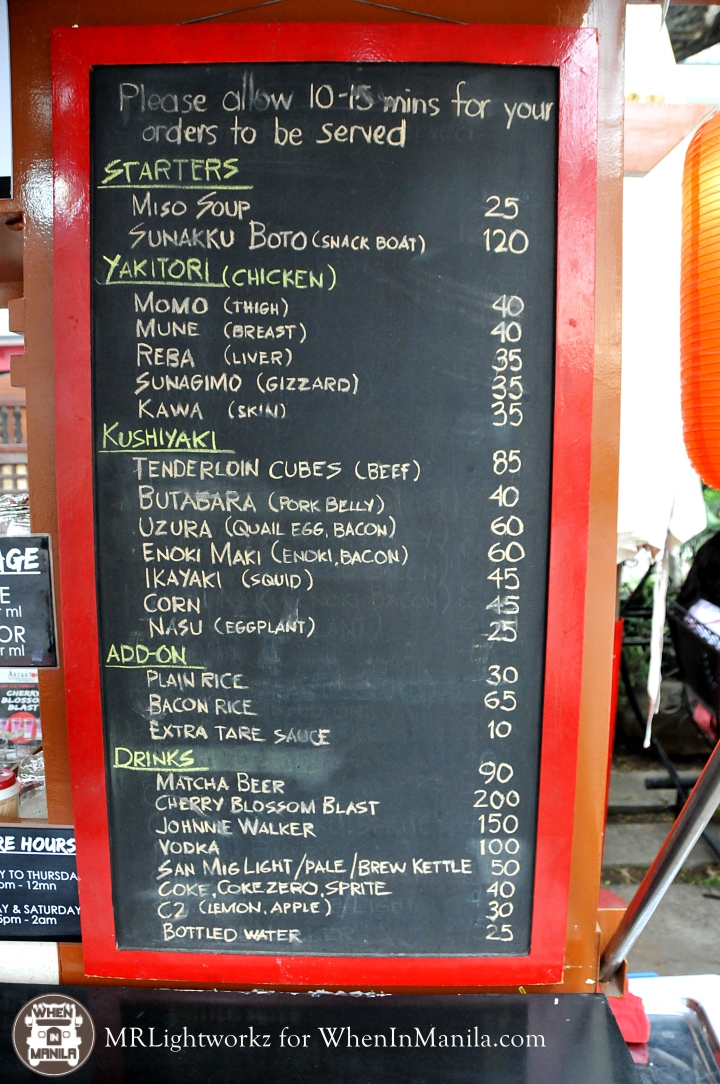 Please allow 10-15 mins for your
orders to be served
STARTERS
MISO SOUP 25
SUNAKKU BOTO (SNACK BOAT) 120
YAKITORI (CHICKEN)
MOMO (THIGH) 40
MUNE (BREAST) 40
REBA (LIVER) 35
SUNAGIMO (GIZZARD) 35
KAWA (SKIN) 35
KUSHIYAKI
TENDERLOIN CUBES (BEEF) 85
BUTABARA (PORK BELLY) 40
UZURA (QUAIL EGG, BACON) 60
ENOKI MAKI (ENOKI, BACON) 60
IKAYAKI (SQUID) 45
CORN 45
NASU (EGGPLANT) 25
ADD-ON
PLAIN RICE 30
BACON RICE 65
EXTRA TARE SAUCE 10
DRINKS
MATCHA BEER 90
CHERRY BLOSSOM BLAST 200
JOHNNIE WALKER 150
VODKA 100
SAN MIG LIGHT/PALE/BREW KETTLE 50
COKE, COKE ZERO, SPRITE 40
C2 (LEMON, APPLE) 30
BOTTLED WATER 25
AGE
E
r ml
OR
r ml
CHERRY
BLOSSOM
BLAST
RE HOURS
Y TO THURSDA
pm - 12mn
AY & SATURDAY
6pm - 2am
WHEN
IN
MANILA
MRLightworkz for WhenInManila.com